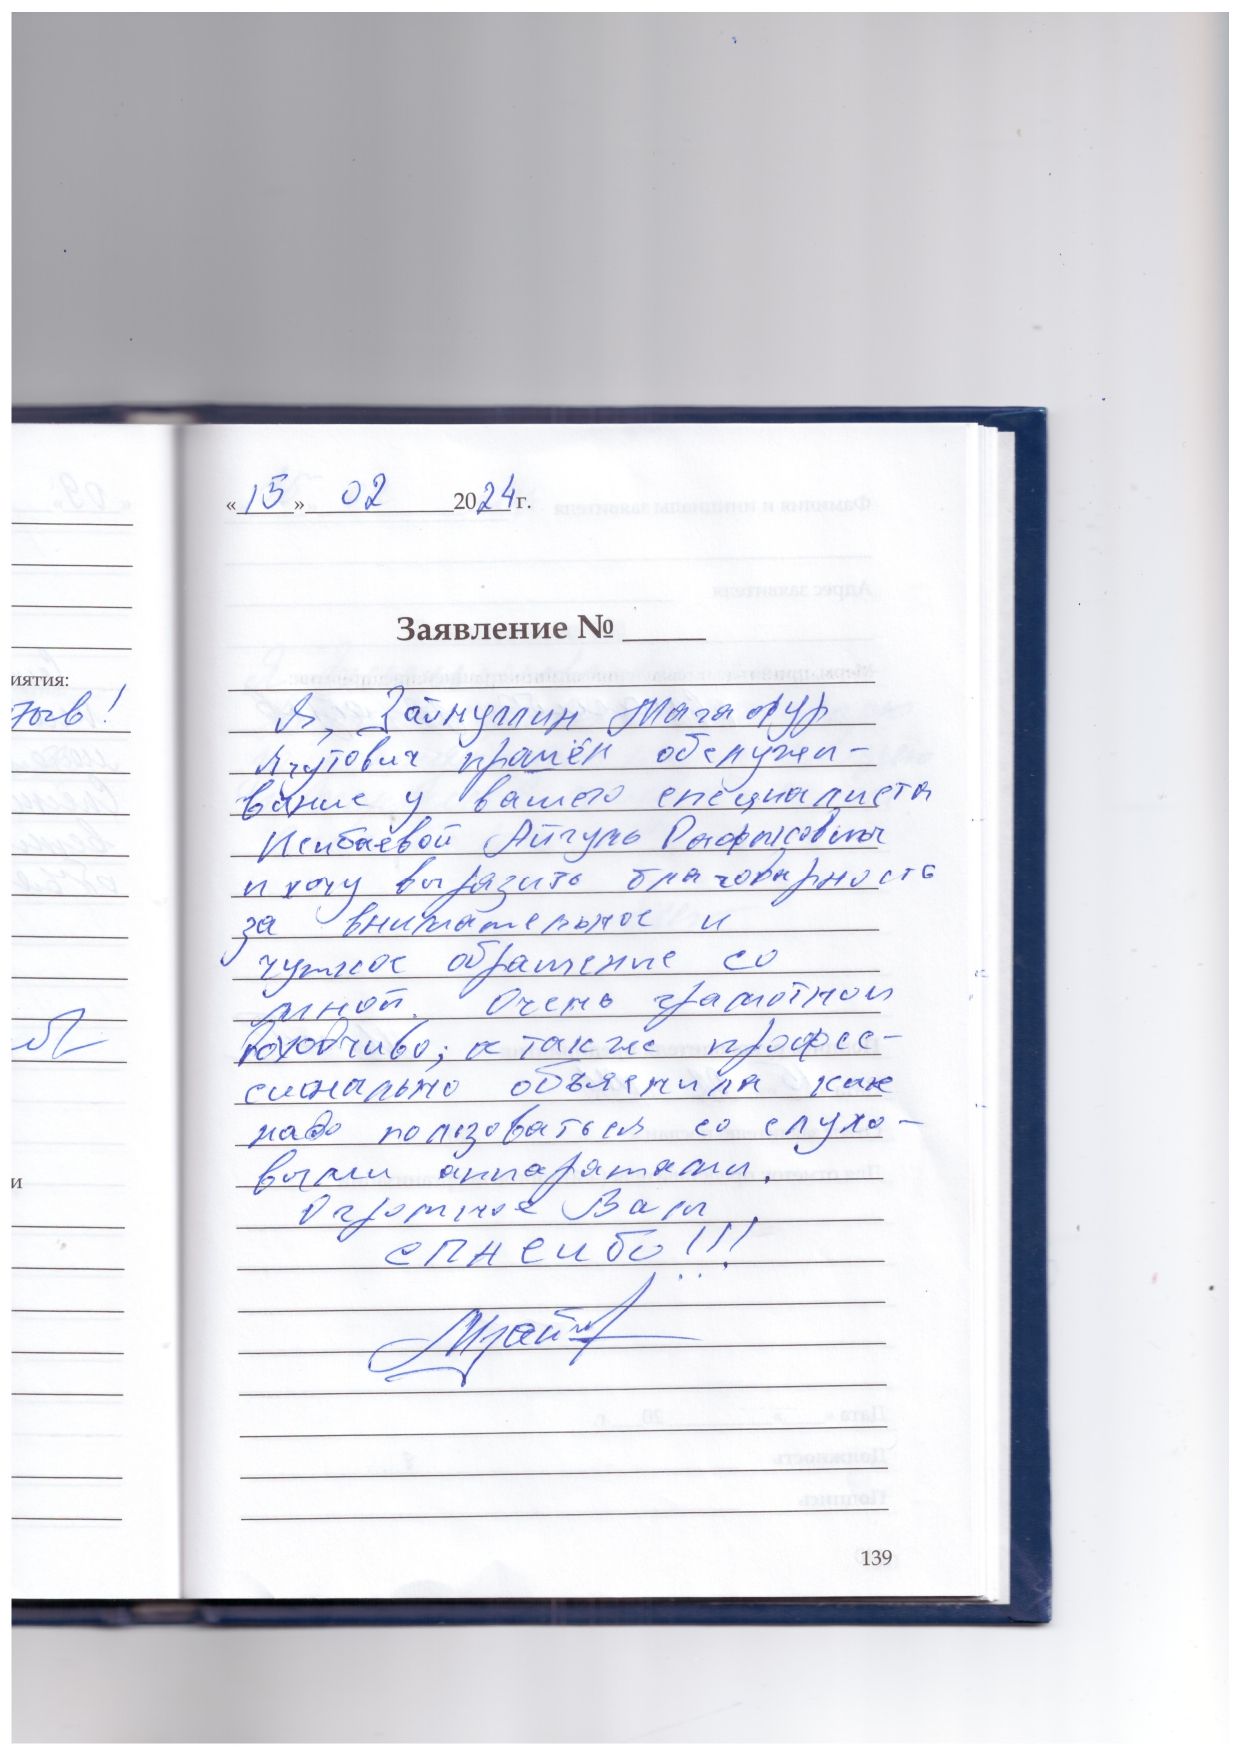 «15» 02 2024 г.
Заявление № _____
Я, Зайнуллин Магафур
прошён обслужи-
вание у вашего специалиста
Исибаевой Айгуль
и хочу выразить благодарность
за внимательное и
чуткое обращение со
мной. Очень грамотно и
доходчиво, а также профес-
сионально объяснила как
надо пользоваться со слухо-
выми аппаратами.
Огромное Вам
спасибо!!!
139
иятия:
тыв!
и